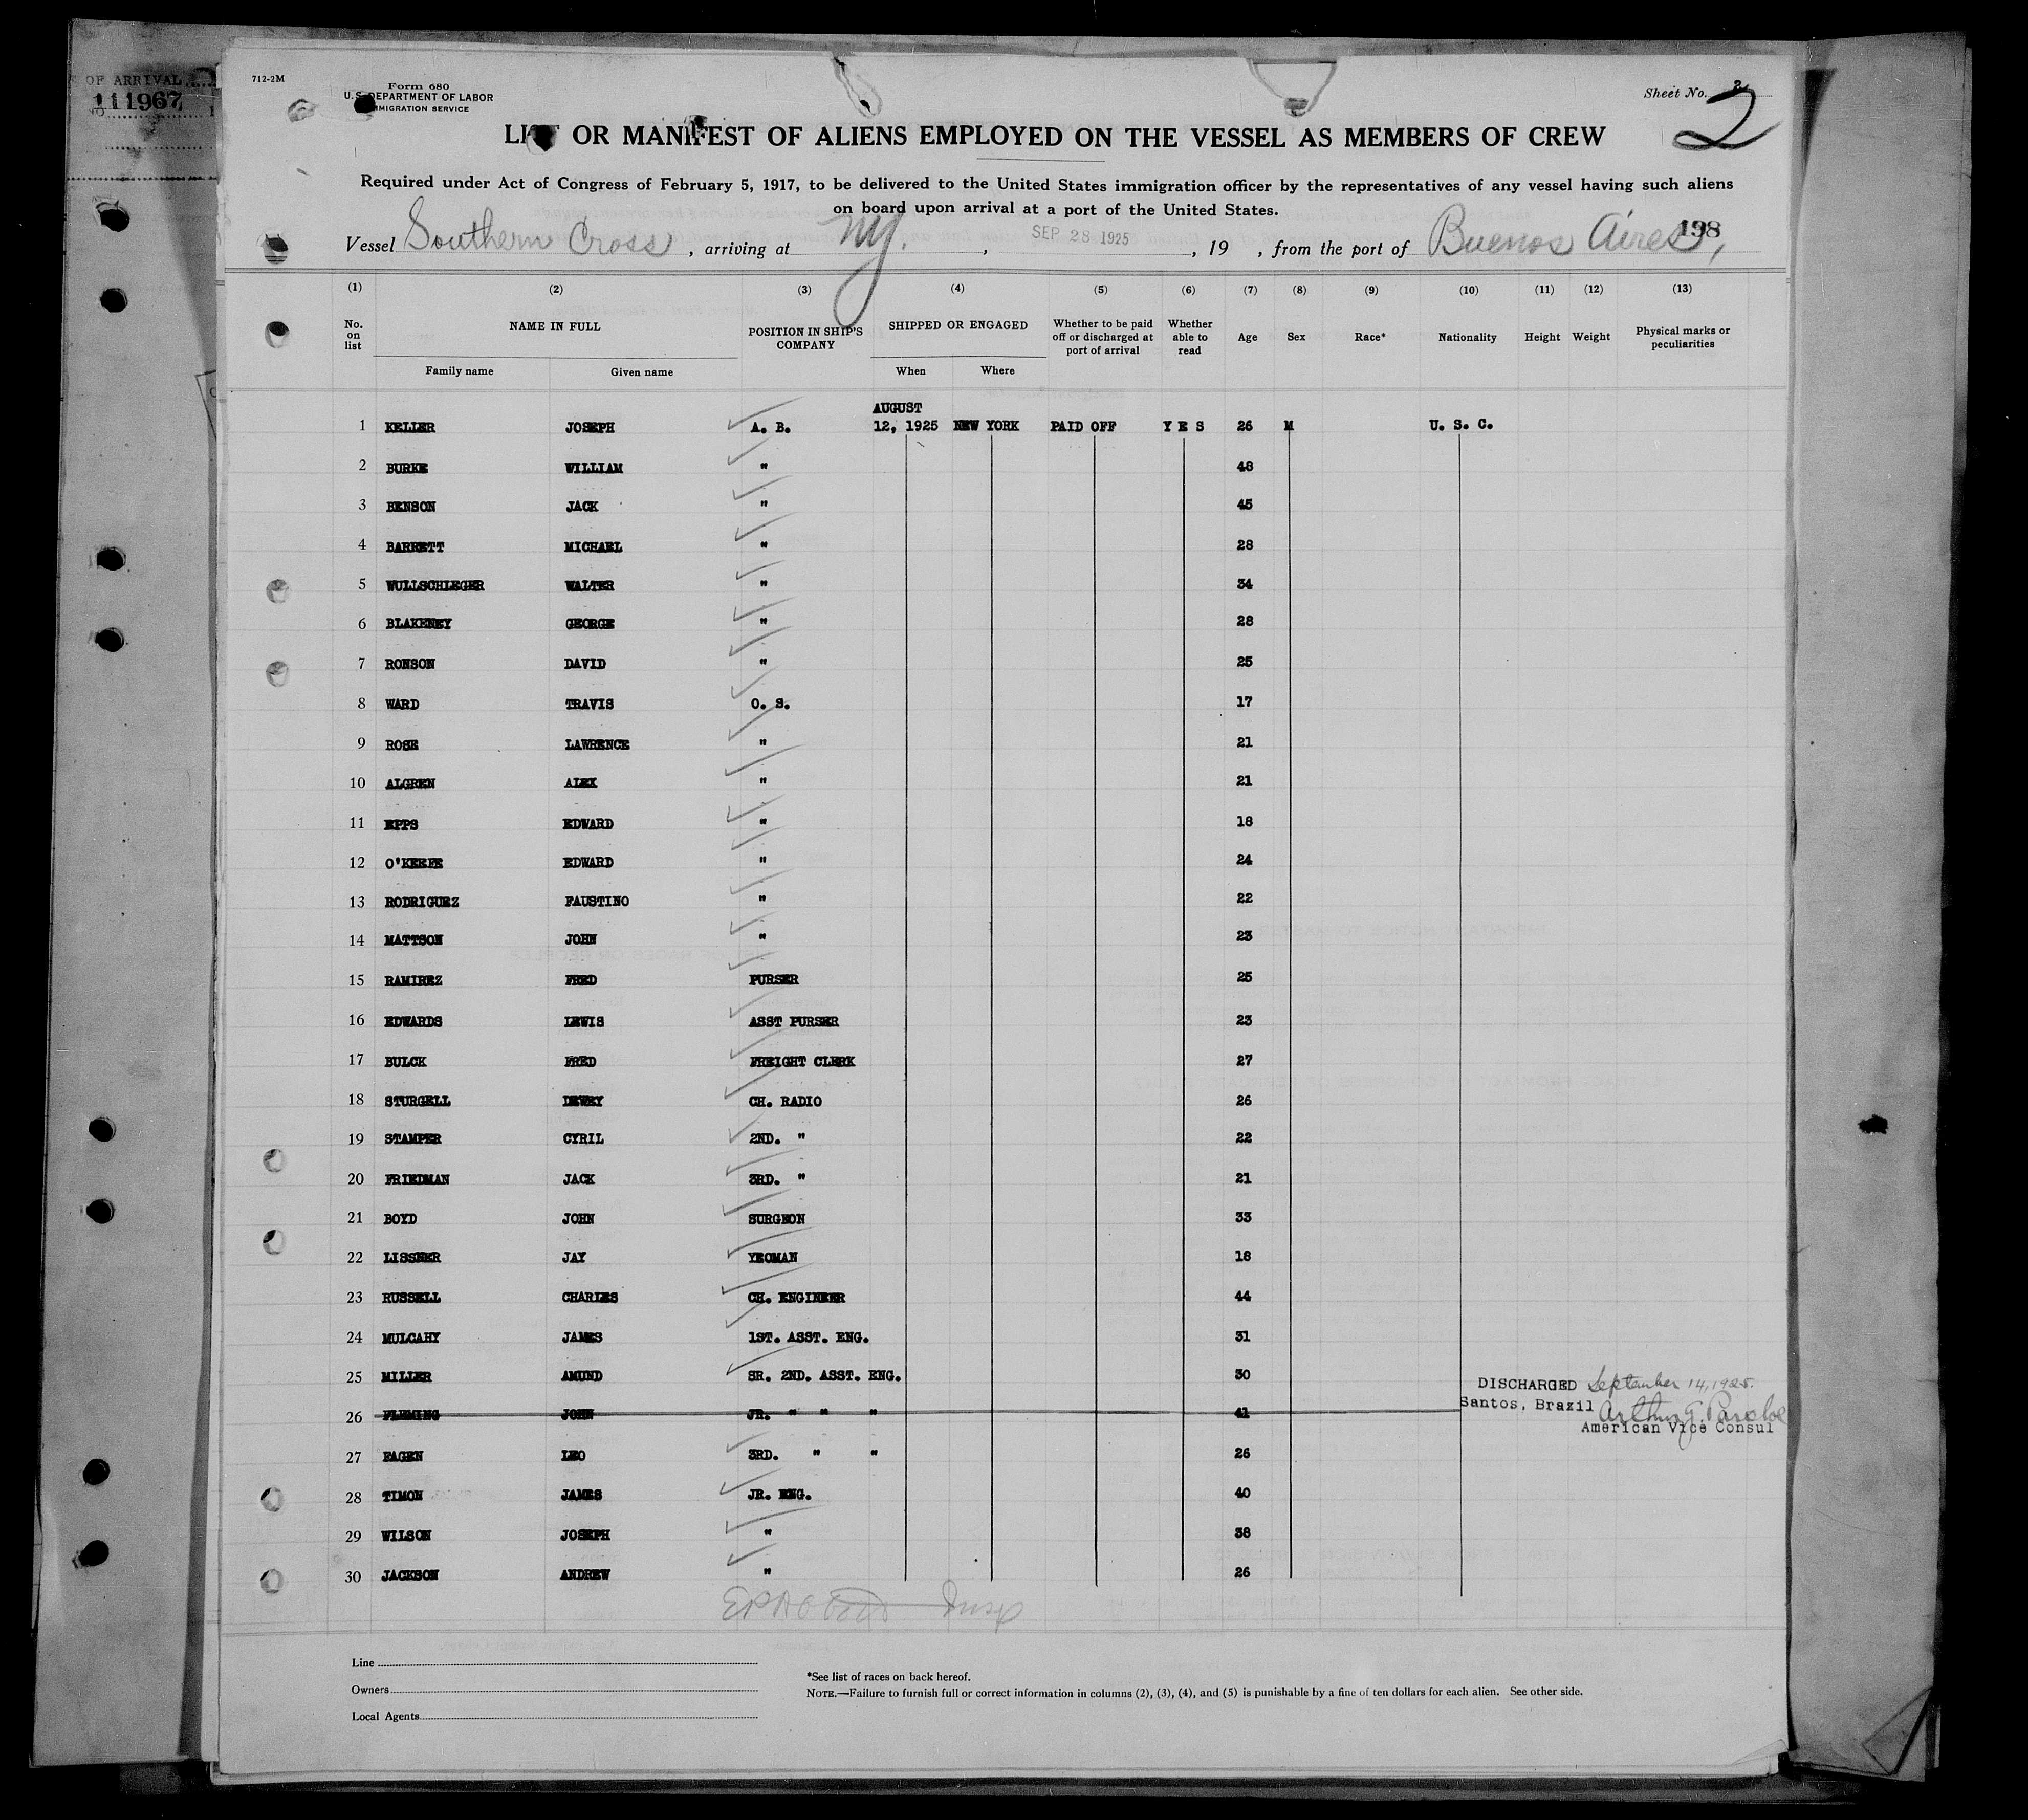 OF ARRIVAL
111967
712-2M
Form 680
U. S. DEPARTMENT OF LABOR
IMMIGRATION SERVICE
Sheet No. 2
2
LIST OR MANIFEST OF ALIENS EMPLOYED ON THE VESSEL AS MEMBERS OF CREW
Required under Act of Congress of February 5, 1917, to be delivered to the United States immigration officer by the representatives of any vessel having such aliens
on board upon arrival at a port of the United States.
198
Vessel Southern Cross, arriving at NY., SEP 28 1925, 19 , from the port of Buenos Aires,
(1) (2) (3) (4) (5) (6) (7) (8) (9) (10) (11) (12) (13)
No. on list NAME IN FULL POSITION IN SHIP'S COMPANY SHIPPED OR ENGAGED Whether to be paid off or discharged at port of arrival Whether able to read Age Sex Race* Nationality Height Weight Physical marks or peculiarities
Family name Given name When Where
AUGUST
1 KELLER JOSEPH A. B. 12, 1925 NEW YORK PAID OFF YES 26 M U. S. C.
2 BURKE WILLIAM " 48
3 BENSON JACK " 45
4 BARRETT MICHAEL " 28
5 WULLSCHLEGER WALTER " 34
6 BLAKENEY GEORGE " 28
7 RONSON DAVID " 25
8 WARD TRAVIS O. S. 17
9 ROSE LAWRENCE " 21
10 ALGREN ALEX " 21
11 EPPS EDWARD " 18
12 O'KEEFE EDWARD " 24
13 RODRIGUEZ FAUSTINO " 22
14 MATTSON JOHN " 23
15 RAMIREZ FRED PURSER 25
16 EDWARDS LEWIS ASST PURSER 23
17 BULCK FRED FREIGHT CLERK 27
18 STURGELL DEWEY CH. RADIO 26
19 STAMPER CYRIL 2ND. " 22
20 FRIEDMAN JACK 3RD. " 21
21 BOYD JOHN SURGEON 33
22 LISSNER JAY YEOMAN 18
23 RUSSELL CHARLES CH. ENGINEER 44
24 MULCAHY JAMES 1ST. ASST. ENG. 31
25 MILLER AMUND SR. 2ND. ASST. ENG. 30
DISCHARGED September 14, 1925.
26 FLEMING JOHN JR. " " " 41 Santos, Brazil Arthur G.
American Vice Consul
27 FAGEN LEO 3RD. " " 26
28 TIMON JAMES JR. ENG. 40
29 WILSON JOSEPH " 38
30 JACKSON ANDREW " 26
Line
Owners
Local Agents
*See list of races on back hereof.
NOTE.—Failure to furnish full or correct information in columns (2), (3), (4), and (5) is punishable by a fine of ten dollars for each alien. See other side.